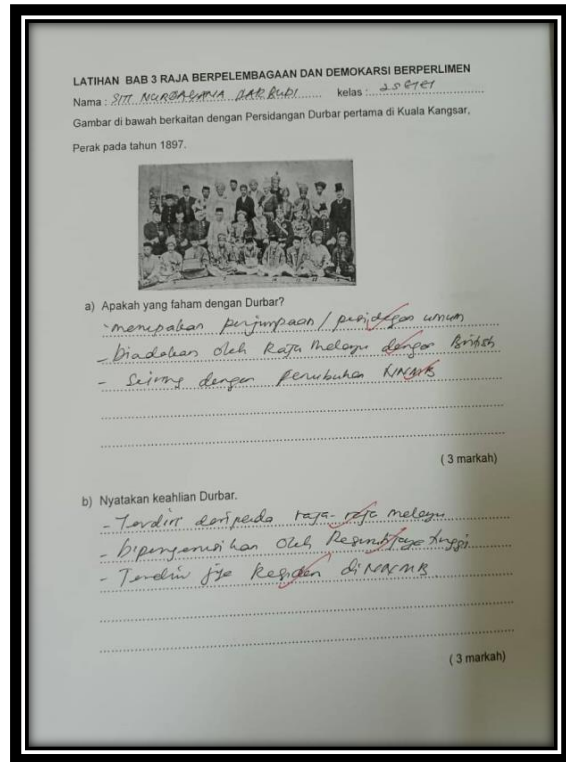 LATIHAN BAB 3 RAJA BERPELEMBAGAAN DAN DEMOKARSI BERPERLIMEN
Nama : SITI kelas :
Gambar di bawah berkaitan dengan Persidangan Durbar pertama di Kuala Kangsar,
Perak pada tahun 1897.
a) Apakah yang faham dengan Durbar?
- merupakan perjumpaan / umum
- Diadakan oleh Raja Melayu dengan British
- Seiring dengan penubuhan NNMB
( 3 markah)
b) Nyatakan keahlian Durbar.
- Terdiri daripada raja-raja melayu
- Dipengerusikan Oleh tinggi
- Terdiri jga Residen di NNMB
( 3 markah)